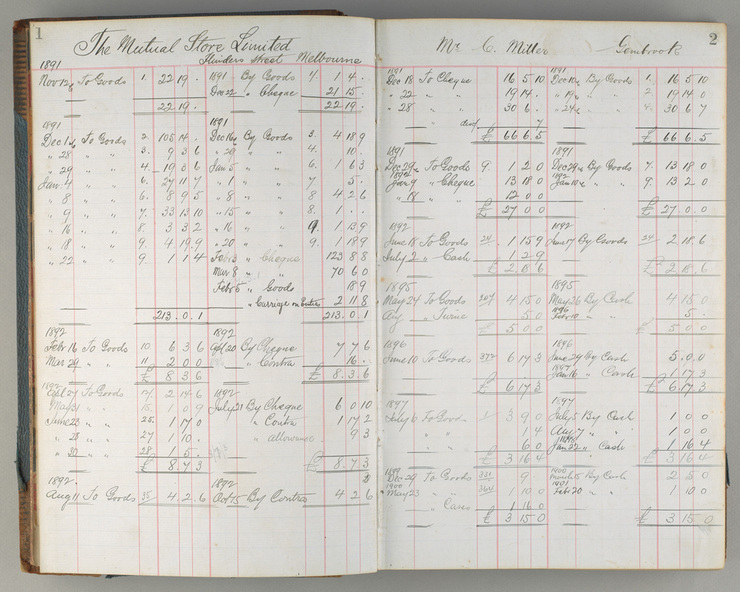 1
The Mutual Store Limited
Flinders Street Melbourne
1891 1891
Nov 12 To Goods 1. 22 19 . By Goods 4. 1 4 .
Dec 22 " Cheque 21 15 .
22 19 . 22 19 .
1891 1891
Dec 1 To Goods 2. 105 14 . Dec 16 By Goods 3. 4 18 9
" 28 " " 3. 9 3 6 " " " 4. 10 .
" 29 " " 4. 19 3 6 Jan 5 " " 6. 1 6 3
Jan 4 " " 6. 27 11 7 " 1 " " 7. 5 .
" 8 " " 6. 8 9 5 " 8 " " 8 4 2 6
" 9 " " 7. 33 13 10 " 15 " " 8. 1 . .
" 16 " " 8. 3 3 2 " 16 " " 9. 1 13 9
" 18 " " 9. 4 19 9 " 20 " " 9. 1 18 9
" 22 " " 9. 1 1 4 Feb 3 " Cheque 123 8 8
Mar 8 " " 70 6 0
Feb 5 " Goods 18 9
" Carriage on Contra 2 11 8
213 . 0 . 1 213 . 0 . 1
1892 1892
Feb 16 To Goods 10 6 3 6 Apl 20 By Cheque 7 7 6
Mar 24 " " 11 2 0 0 " Contra 16 .
£ 8 . 3 6 £ 8 . 3 . 6
1892 1892
Apl 27 To Goods 17. 2 14 6
May 31 " " 15. 1 0 9 July 21 By Cheque 6 0 10
June 23 " " 25. 1 17 0 " Contra 1 17 2
" 28 " " 27 1 10 . " allowance 9 3
" 30 " " 28 1 5 .
£ 8 . 7 3 £ 8 . 7 . 3
1892 1892
Aug 11 To Goods 35 4 2 6 Oct 15 By Contra 4 2 6
2
Mr C. Miller Gembrook
1891 1891
Dec 18 To Cheque 16 5 10 Dec 10 By Goods 1. 16 5 10
" 22 " " 19 14 . " 19 " " 2. 19 14 0
" 28 " " 30 6 . " 24 " " 4. 30 6 7
" disct 7
£ 66 6 . 5 £ 66 6 . 5
1891 1891
Dec 29 To Goods 9. 1 2 0 Dec 29 By Goods 7. 13 18 0
1892 1892
Jan 9 " Cheque 13 18 0 Jan 18 " " 9. 13 2 0
" 18 " " 12 0 0
£ 27 0 0 £ 27 . 0 . 0
1892 1892
June 18 To Goods 24 1 15 9 June 7 By Goods 24 2 18 6
July 2 " Cash 1 2 9
£ 2 18 6 £ 2 18 . 6
1895 1895
May 24 To Goods 247 4 15 0 May 26 By Cash 4 15 0
1896
Aug " Twine 5 0 Feb 10 " " 5 .
£ 5 0 0 £ 5 0 0
1896 1896
June 10 To Goods 372 6 17 3 June 29 By Cash 5 . 0 . 0
1897
Jan 16 " Cash 1 17 3
£ 6 17 3 £ 6 17 . 3
1897 1897
July 6 To Goods 3 9 0 July 5 By Cash 1 0 0
" " 1 4 Aug 7 " " 1 0 0
" " 6 0 Jan 22 " Cash 1 16 4
£ 3 16 4 £ 3 16 4
1899 1900
Dec 29 To Goods 9 . March 5 By Cash 2 5 0
1900 1901
May 23 " " 364 1 10 0 Feb 20 " " 1 10 0
" Cases 1 16 0
£ 3 15 0 £ 3 15 0